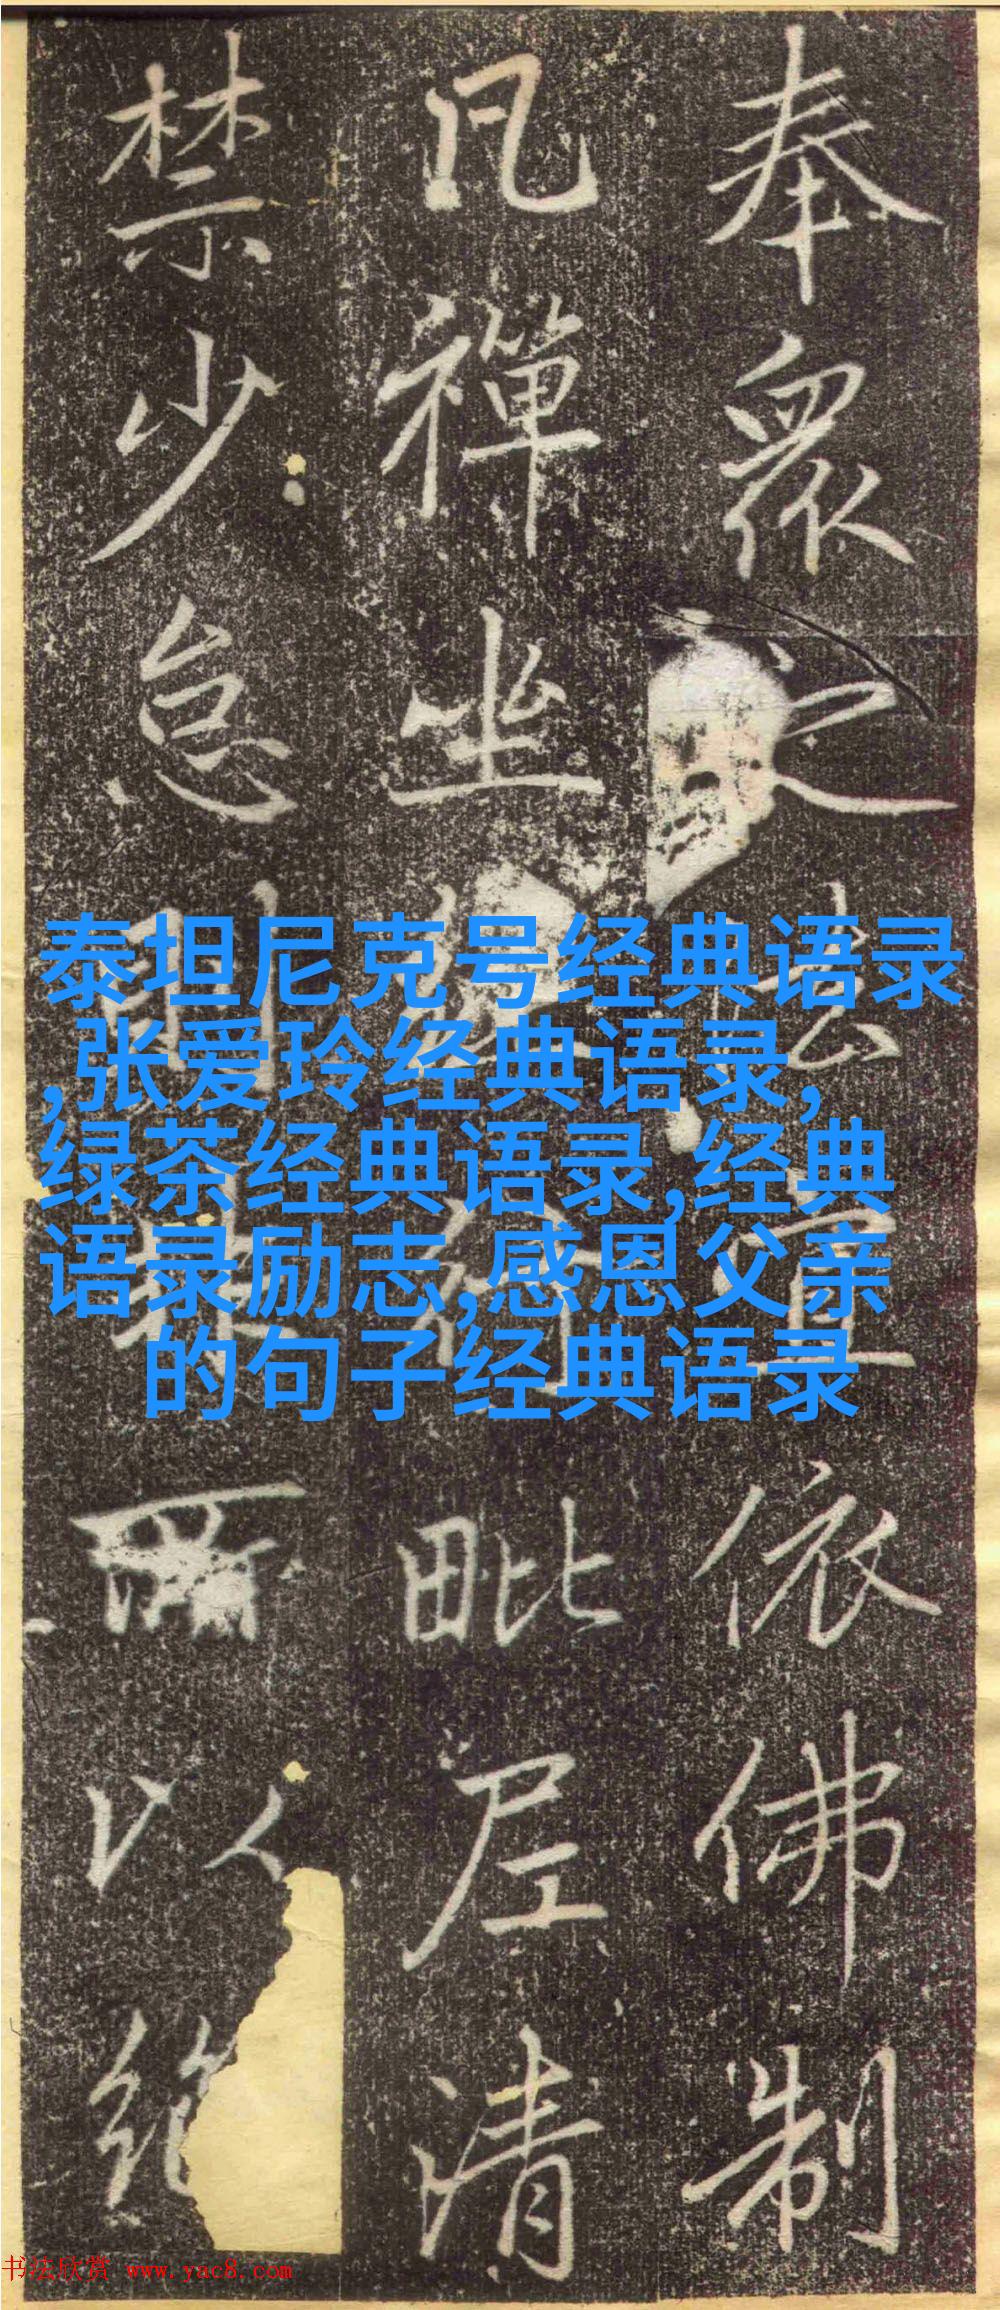 奉衆之法宜依佛制
凡禪坐
毗尼清
禁少怠則
所以絕
泰坦尼克号经典语录
,张爱玲经典语录,
绿茶经典语录,经典
语录励志,感恩父亲
的句子经典语录
书法欣赏 www.yac8.com